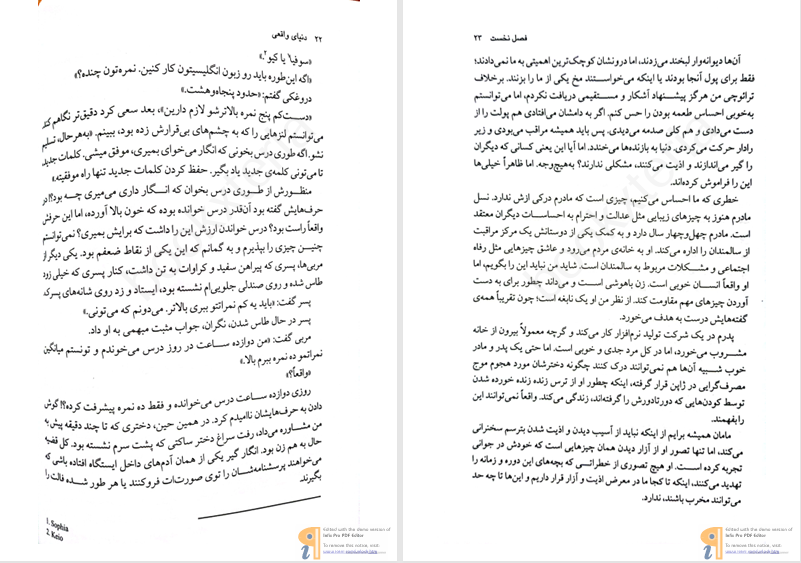 ۲۲ دنیای واقعی
«سوفیا۱ یا کیو۲.»
«اگه این‌طوره باید رو زبون انگلیسیتون کار کنین. نمره‌تون چنده؟»
دروغکی گفتم: «حدود پنجاه‌وهشت.»
«دست‌کم پنج نمره بالاترشو لازم دارین»، بعد سعی کرد دقیق‌تر نگاهم کند
می‌توانستم لنزهایی را که به چشم‌های بی‌قرارش زده بود، ببینم. «به‌هرحال، تسلیم
نشو. اگه طوری درس بخونی که انگار می‌خوای بمیری، موفق میشی. کلمات جدید
تا می‌تونی کلمه‌ی جدید یاد بگیر. حفظ کردن کلمات جدید تنها راه موفقیته.»
منظورش از طوری درس بخوان که انگار داری می‌میری چه بود؟! در
حرف‌هایش گفته بود آن‌قدر درس خوانده بوده که خون بالا آورده، اما این حرفش
واقعاً راست بود؟ درس خواندن ارزش این را داشت که برایش بمیری؟ نمی‌توانستم
چنین چیزی را بپذیرم و به گمانم که این یکی از نقاط ضعفم بود. یکی دیگر از
مربی‌ها، پسری که پیراهن سفید و کراوات به تن داشت، کنار پسری که خیلی زود
طاس شده و روی صندلی جلویی‌ام نشسته بود، ایستاد و زد روی شانه‌های پسرک.
پسر گفت: «باید یه کم نمراتتو ببری بالاتر. می‌دونم که می‌تونی.»
پسر در حال طاس شدن، نگران، جواب مثبت مبهمی به او داد.
مربی گفت: «من دوازده ساعت در روز درس می‌خوندم و تونستم میانگین
نمراتمو ده نمره ببرم بالا.»
«واقعاً؟»
روزی دوازده ساعت درس می‌خوانده و فقط ده نمره پیشرفت کرده؟! گوش
دادن به حرف‌هایشان ناامیدم کرد. در همین حین، دختری که تا چند دقیقه پیش به
من مشاوره می‌داد، رفت سراغ دختر ساکتی که پشت سرم نشسته بود. کل قضیه
حال به هم زن بود. انگار گیر یکی از همان آدم‌های داخل ایستگاه افتاده باشی که
می‌خواهند پرسشنامه‌شان را توی صورت‌ات فروکنند یا هر طور شده فالت را
بگیرند.
1. Sophia
2. Keio
Edited with the demo version of
Infix Pro PDF Editor
To remove this notice, visit:
فصل نخست ۲۳
آن‌ها دیوانه‌وار لبخند می‌زدند، اما درونشان کوچک‌ترین اهمیتی به ما نمی‌دادند؛
فقط برای پول آنجا بودند یا اینکه می‌خواستند مخ یکی از ما را بزنند. برخلاف
ترائوچی من هرگز پیشنهاد آشکار و مستقیمی دریافت نکردم، اما می‌توانستم
به‌خوبی احساس طعمه بودن را حس کنم. اگر به دامشان می‌افتادی هم پولت را از
دست می‌دادی و هم کلی صدمه می‌دیدی. پس باید همیشه مراقب می‌بودی و زیر
رادار حرکت می‌کردی. دنیا به بازنده‌ها می‌خندد. اما آیا این یعنی کسانی که دیگران
را گیر می‌اندازند و اذیت می‌کنند، مشکلی ندارند؟ به‌هیچ‌وجه. اما ظاهراً خیلی‌ها
این را فراموش کرده‌اند.
خطری که ما احساس می‌کنیم، چیزی است که مادرم درکی ازش ندارد. نسل
مادرم هنوز به چیزهای زیبایی مثل عدالت و احترام به احساسات دیگران معتقد
است. مادرم چهل‌وچهار سال دارد و به کمک یکی از دوستانش یک مرکز مراقبت
از سالمندان را اداره می‌کند. او به خانه‌ی مردم می‌رود و عاشق چیزهایی مثل رفاه
اجتماعی و مشکلات مربوط به سالمندان است. شاید من نباید این را بگویم، اما
او واقعاً انسان خوبی است. زن باهوشی است و می‌داند چطور برای به دست
آوردن چیزهای مهم مقاومت کند. از نظر من او یک نابغه است؛ چون تقریباً همه‌ی
گفته‌هایش درست به هدف می‌خورد.
پدرم در یک شرکت تولید نرم‌افزار کار می‌کند و گرچه معمولاً بیرون از خانه
مشروب می‌خورد، اما در کل مرد جدی و خوبی است. اما حتی یک پدر و مادر
خوب شبیه آن‌ها هم نمی‌توانند درک کنند چگونه دخترشان مورد هجوم موج
مصرف‌گرایی در ژاپن قرار گرفته، اینکه چطور او از ترس زنده زنده خورده شدن
توسط کودن‌هایی که دورتادورش را گرفته‌اند، زندگی می‌کند. واقعاً نمی‌توانند این
را بفهمند.
مامان همیشه برایم از اینکه نباید از آسیب دیدن و اذیت شدن بترسم سخنرانی
می‌کند، اما تنها تصور او از آزار دیدن همان چیزهایی است که خودش در جوانی
تجربه کرده است. او هیچ تصوری از خطراتی که بچه‌های این دوره و زمانه را
تهدید می‌کنند، اینکه تا کجا ما در معرض اذیت و آزار قرار داریم و این‌ها تا چه حد
می‌توانند مخرب باشند، ندارد.
Edited with the demo version of
Infix Pro PDF Editor
To remove this notice, visit: